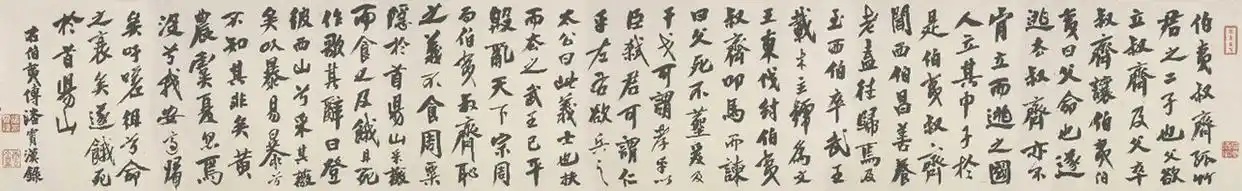 伯夷叔齊孤竹
君之二子也父欲
立叔齊及父卒
叔齊讓伯夷伯
夷曰父命也遂
逃去叔齊亦不
肯立而逃之國
人立其中子於
是伯夷叔齊
聞西伯昌善養
老盍往歸焉及
至西伯卒武王
載木主號為文
王東伐紂伯夷
叔齊叩馬而諫
曰父死不葬爰及
干戈可謂孝乎以
臣弒君可謂仁
乎左右欲兵之
太公曰此義士也扶
而去之武王已平
殷亂天下宗周
而伯夷叔齊恥
之義不食周粟
隱於首陽山采薇
而食之及餓且死
作歌其辭曰登
彼西山兮采其薇
矣以暴易暴兮
不知其非矣黃
農虞夏忽焉
沒兮我安適歸
矣吁嗟徂兮命
之衰矣遂餓死
於首陽山
右伯夷傳